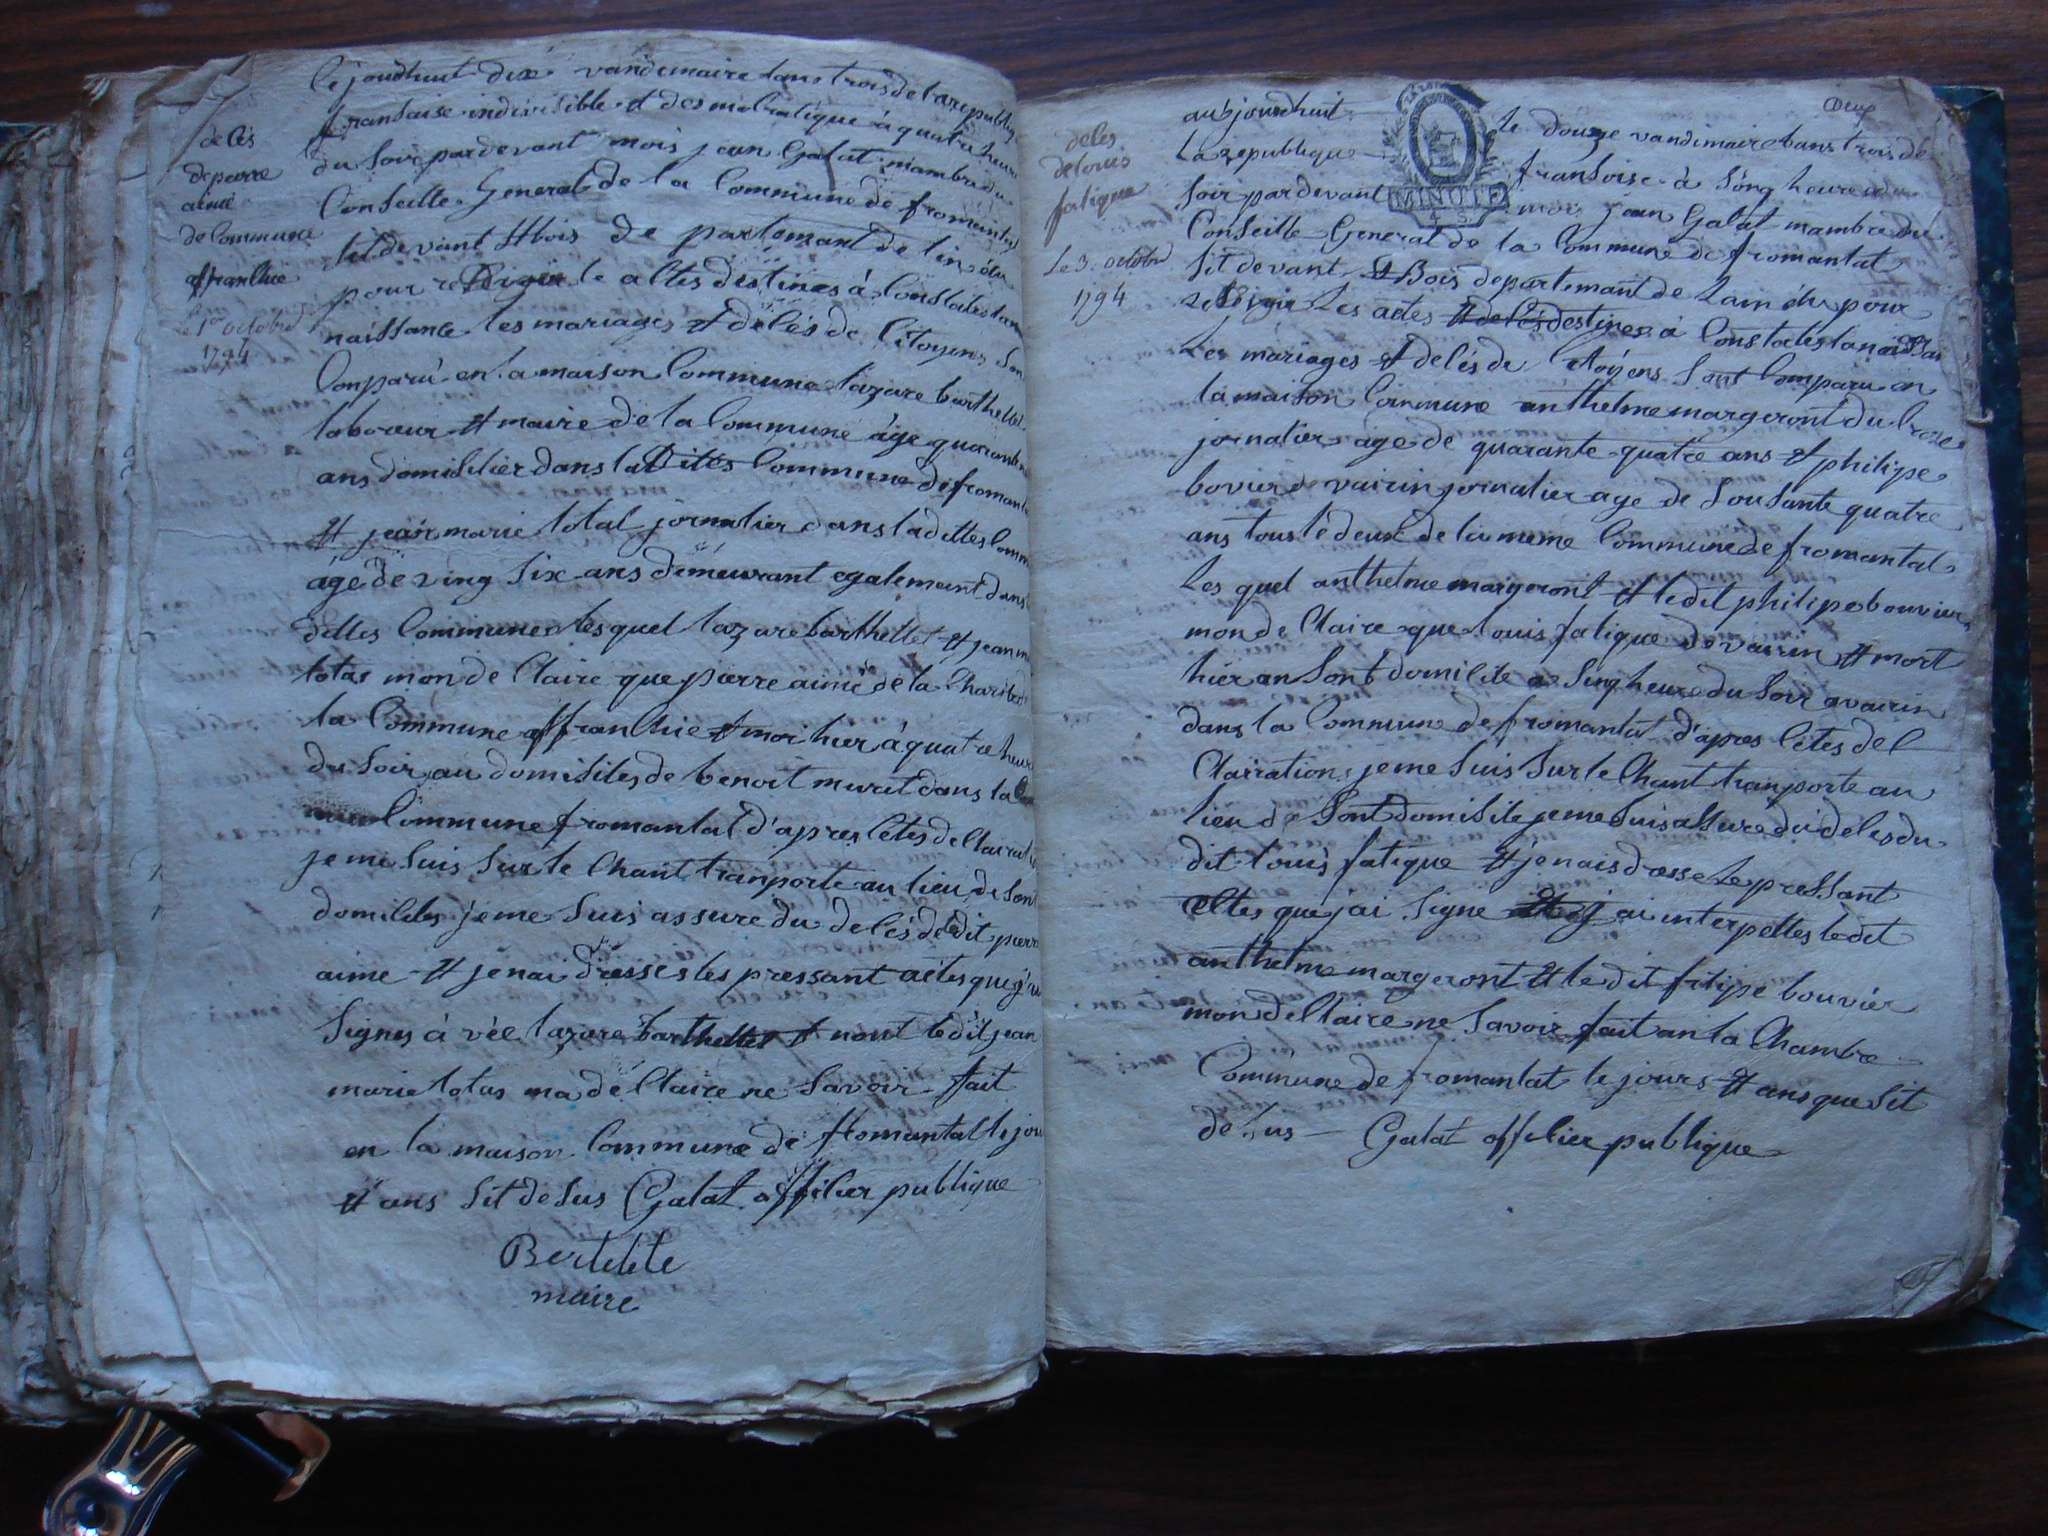 de lés
de pierre
aimé
de Commune
affranchie
le 1er octobre
1794
Cejourdhuit dixé vandemaire lans trois de la republiq
fransaise indivisible et des mocratique à quatre heure
du soir pardevant mois jean Galat mambre du
Conseille General de la Commune de fromentat
sit devant st bois de partemant de lin élu
pour reservoir le altes destines à Constates la
naissance les mariages et delés de Citoyens Son
Conparu en la maison Commune lazare barthelet
laboreur et maire de la Commune âge quarante
ans domisilier dans la Dites Commune de fromanta
et jean marie total jornalier dans la dittes Comm
âgé de ving six ans démeurant egalement dans
dittes Commune lesquel lazare barthellet et jean m
lotas mon de Claire que pierre aimé dé la Charité
la Commune affranchie et mor hier à quatre heure
du Soir au domisiles de benoit murit dans la
Commune fromantat d'apres sétes de Clairati
je me suis Sur le Chant tranporte au lieu de Son
domiciles je me Suis assure du delés dudit pierre
aime et jenai dresses les pressant actes que j'ai
Signes à vée lazare barthellet et nont ledit jean
marie lotas ma dé Claire ne Savoir fait
en la maison Commune de fromantat le jou
et ans sit desus Galat officier publique
Bertelete
maire
Deux
deles
de louis
fatique
Le 3. octobre
1794
MINUTE
4 S.
aus jourdhuit le douze vandimaire lans trois de
La republique fransoise à sinq heure du
soir pardevant mois jean Galat mambre du
Conseille General de la Commune de fromantat
sit devant st Bois departemant de Lain élu pour
reservoir Les actes et deles destines à Constates la naissan
Les mariages et delés de Citoyens Sont Comparu en
la maison Commune anthelme margeront du Croze
jornatier âge de quarante quatre ans et philipe
bovier de vairin jornalier age de Sousante quatre
ans tous lé deux de la meme Commune de fromantal
Les quel anthelme margeront et ledit philipe bouvier
mon de Claire que louis fatique de vairin et mort
hier an Sont domisile a Sinq heure du Soir a vairin
dans la Commune de fromantat d'apres sétes del
Clairation jeme Suis Sur le Chant tranporte au
lieu de Sont domisile jeme Suis assure du deles du
dit louis fatique et jenais dresse Le pressant
altes que j'ai Signe et j'ai interpelles ledit
anthelme margeront et le dit filipe bouvier
mon de Claire ne Savoir fait an la Chambre
Commune de fromantat le jours et ans que sit
desus Galat officier publique